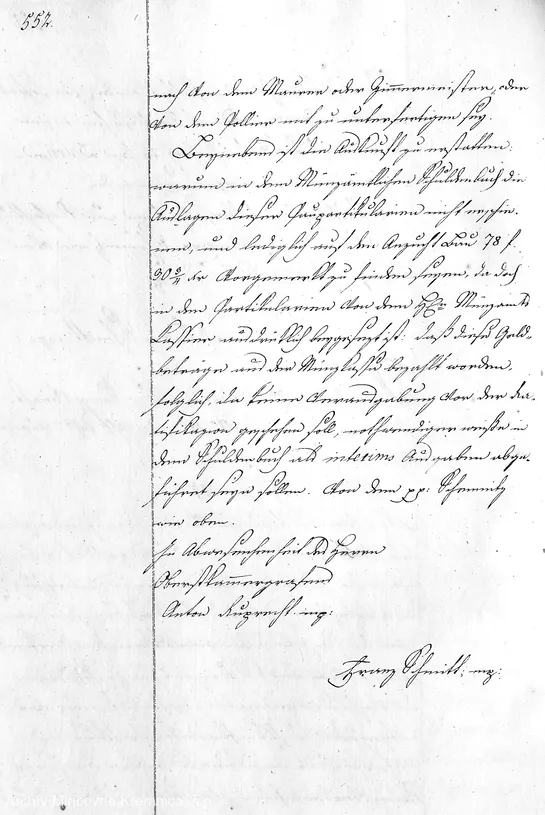 552.
nach von dem Maurer oder Zimmermeister, oder
von dem Pollier mit zu unterfertigen sey.
Beynebens ist die Auskunft zu erstatten:
warum in dem Münzämtlichen Schuldenbuch die
Auslagen dieser Baupartikularien nicht erschie-
nen, und lediglich auf den Bau 78 f
30 3/4 xr Vorgemerkt zu finden seyen, da doch
in den Partikularien von dem H:n Münzamts
Kassier ausdrüklich beygesezt ist: daß diese Geld-
beträge aus der Münzkassa bezahlt worden,
folglich, da keine Verausgabung vor der Ra-
tifikazion geschehen soll, nothwendiger weiße in
dem Schuldenbuch als interims Ausgaben abge-
führet seyn sollen. Von dem pp: Schemnitz
wie oben.
In Abwesenheit des Herrn
Oberstkammergrafens
Anton Ruprecht mp:
Franz Schmitt: mp:
Archív Mincovne Kremnica, š.p.